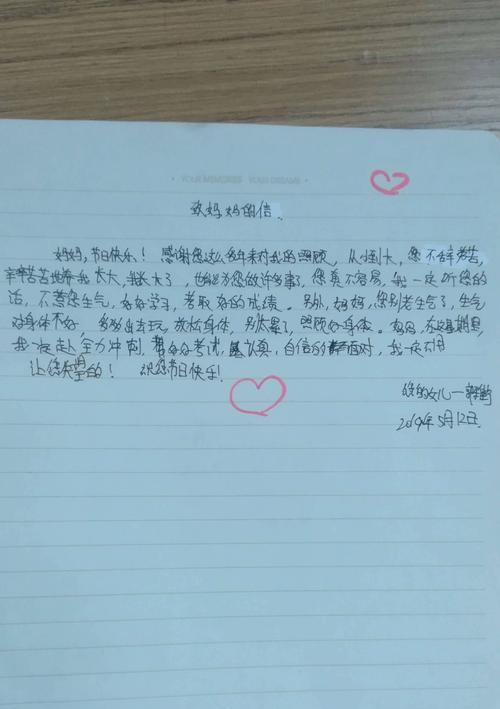 YOUR MEMORIES YOUR DREAMS
致妈妈的信.
妈妈,节日快乐! 感谢您这么多年来对我的照顾, 从小到大, 您不辞劳苦,
辛辛苦苦地养我长大, 我长大了, 也能为您做许多事了, 您真不容易, 我一定听您的
话, 不惹您生气, 好好学习, 考取好的成绩。另外, 妈妈, 您别老生气了, 生气
对身体不好, 多多出去玩, 放松身体, 别太累了, 照顾好身体。妈妈, 在这期里,
我一定会全力冲刺, 好好考试, 认真, 自信的面对, 我一定不会
让您失望的! 祝您节日快乐!
您的女儿一
2019年5月12日.